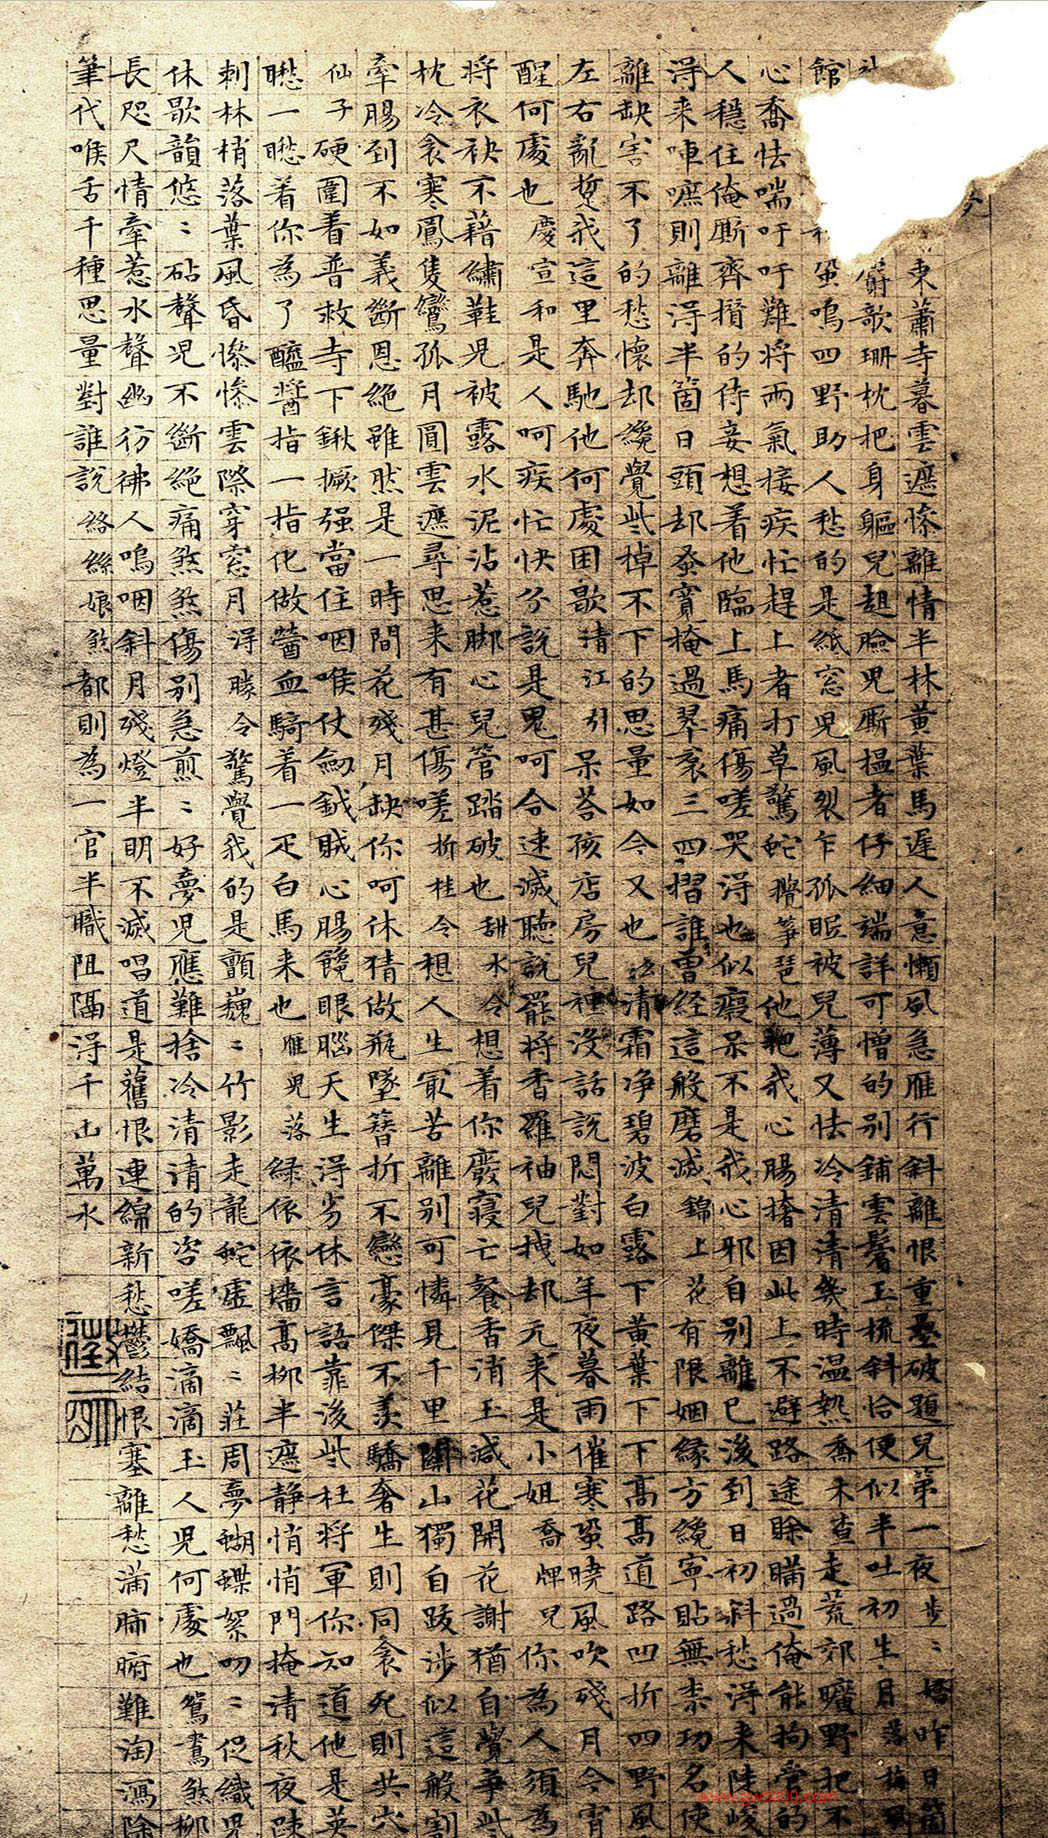 東蕭寺暮雲遮慘離情半林黃葉馬遲人意懶風急雁行斜離恨重疊破題兒第一夜步〻嬌昨日箇
麝歌珊枕把身軀兒趄臉兒廝揾者仔細端詳可憎的別鋪雲鬢玉梳斜恰便似半吐初生月落梅風
館蛩鳴四野助人愁的是紙窓兒風裂乍孤眠被兒薄又怯冷清清幾時温熱喬木查走荒郊曠野把不
心喬怯喘吁吁難將兩氣接疾忙趕上者打草驚蛇攪箏琶他把我心腸搼因此上不避路途賒瞞過俺能拘管的
人穩住俺廝齊攢的侍妾想着他臨上馬痛傷嗟哭淂也似癡呆不是我心邪自別離已後到日初斜愁淂来陡峻
淂来唓嗻則離淂半箇日頭却蚤寳掩過翠裙三四摺誰曾経這般磨滅錦上花有限姻緣方纔寧貼無柰功名使
離缺害不了的愁懷却纔覺些棹不下的思量如今又也么清霜净碧波白露下黄葉下下高高道路凹折四野風
左右亂踅我這里奔馳他何處困歇清江引呆荅孩店房兒裡沒話說悶對如年夜暮雨催寒蛩曉風吹殘月今宵
醒何處也慶宣和是人呵疾忙快分說是鬼呵合速滅聽說罷將香羅袖兒拽却元来是小姐喬牌兒你為人須為
將衣袂不藉繡鞋兒被露水泥沾惹脚心兒管踏破也甜水令想着你廢寢亡餐香消玉減花開花謝猶自覺爭些
枕冷衾寒鳳隻鸞孤月圓雲遮尋思来有甚傷嗟折桂令想人生最苦離別可憐見千里關山獨自跋涉似這般割
牽腸到不如義斷恩絕雖然是一時間花殘月缺你呵休猜做瓶墜簪折不戀豪傑不羡驕奢生則同衾死則共穴
仙子硬圍着普救寺下鍬撅强當住咽喉仗劍鉞賊心腸饞眼腦天生淂劣休言語靠後些杜將軍你知道他是英
一着你為了醯醬指一指化做䓨血騎着一疋白馬来也雁兒落綠依依墻高柳半遮静悄悄門掩清秋夜踈
刺林梢落葉風昏慘慘雲際穿窓月淂勝令驚覺我的是顫巍〻竹影走龍蛇虚飄〻莊周夢蝴蝶絮叨〻促織兒
休歇韻悠〻砧聲兒不斷絕痛煞煞傷別急煎〻好夢兒應難捨冷清清的咨嗟嬌滴滴玉人兒何處也鴛鴦煞柳
長咫尺情牽惹水聲幽彷彿人嗚咽斜月殘燈半明不滅唱道是舊恨連綿新愁鬱結恨塞離愁滿肺腑難淘瀉除
筆代喉舌千種思量對誰說絡絲娘煞都則為一官半職阻隔淂千山萬水